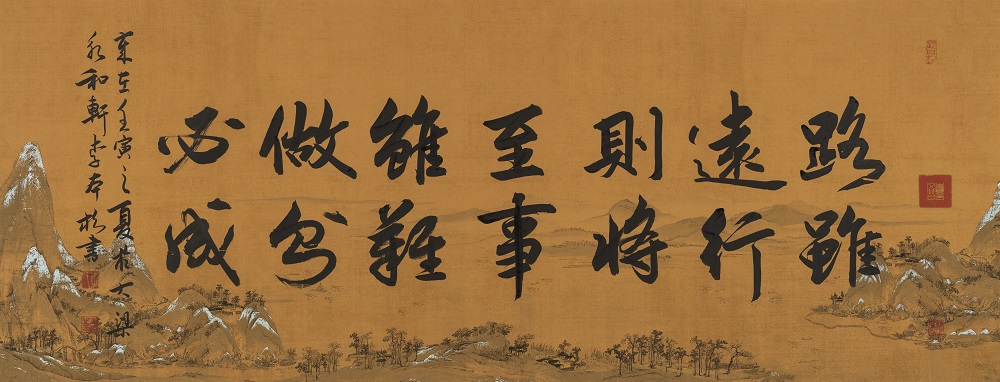 路雖
遠行
則將
至事
雖難
做則
必成
歲在壬寅之夏於大梁
永和軒李本松書